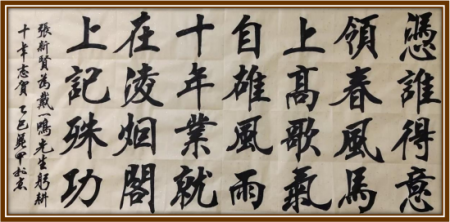 憑誰得意
領春風馬
上高歌氣
自雄風雨
十年業就
在淩烟閣
上記殊功
張新賢為戴一鳴先生躬耕
十年志賀 乙巳